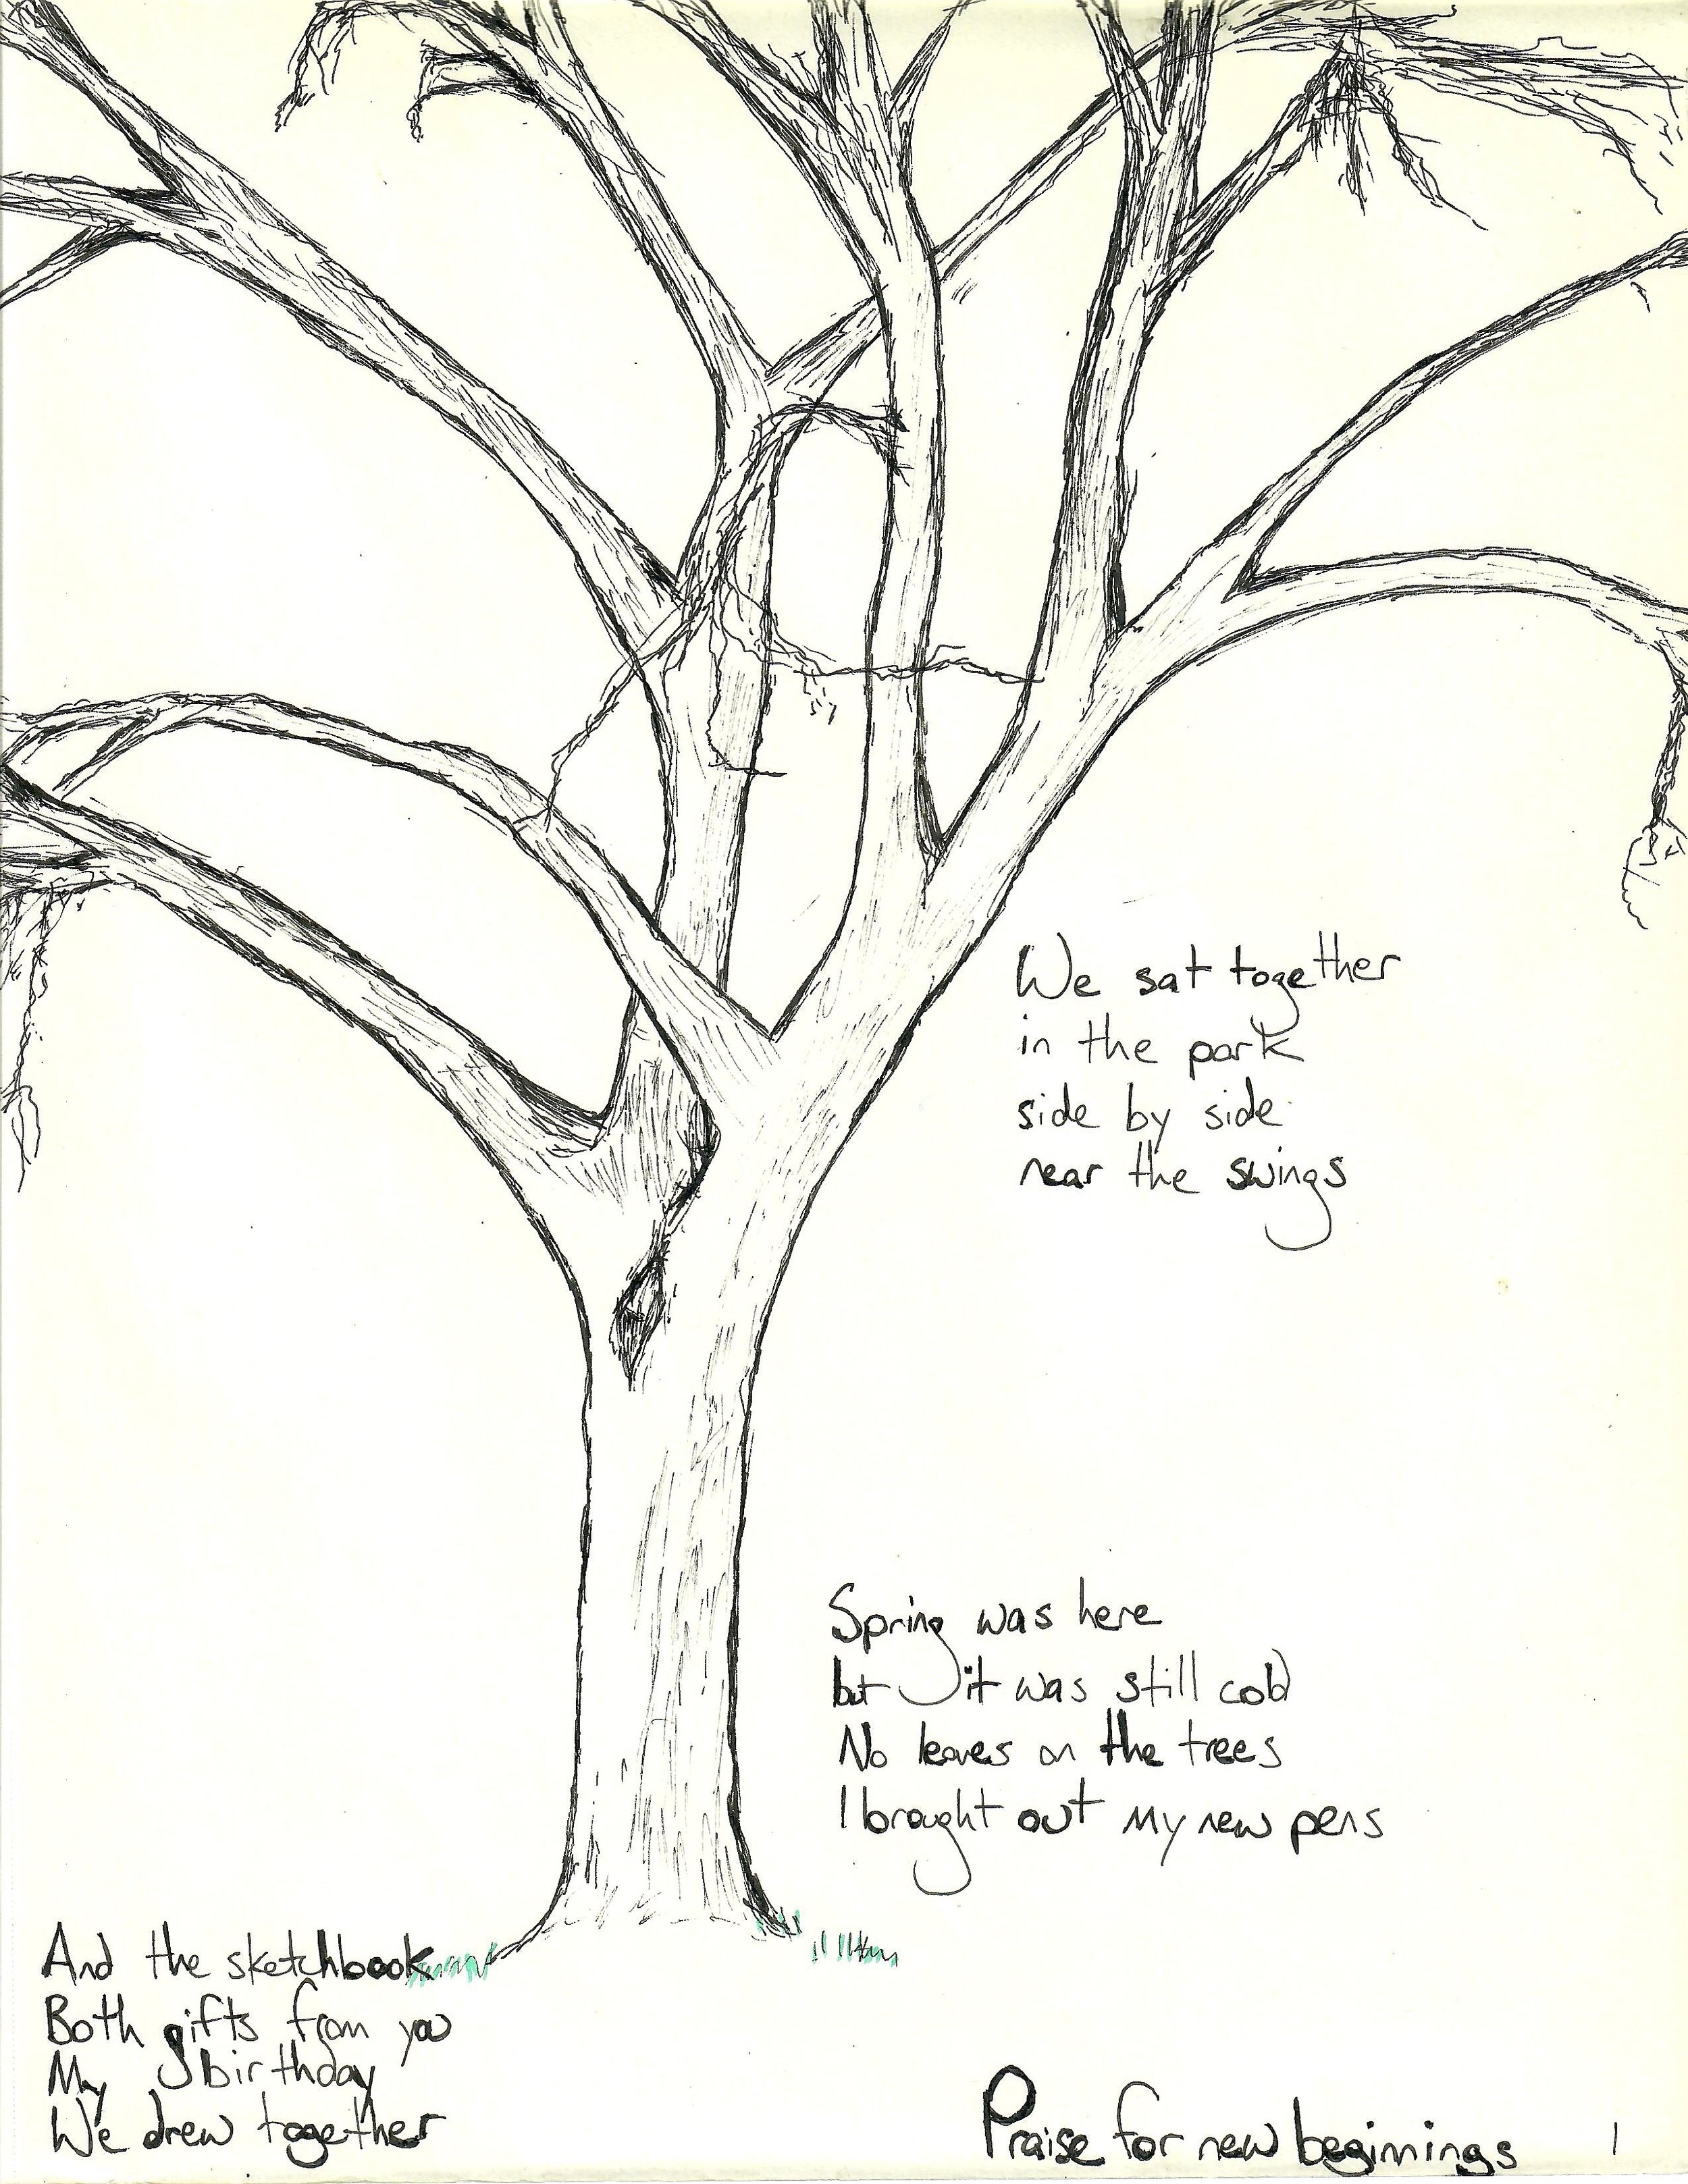 We sat together
in the park
side by side
near the swings
Spring was here
but it was still cold
No leaves on the trees
I brought out my new pens
And the sketchbook
Both gifts from you
My birthday
We drew together
Praise for new beginnings 1